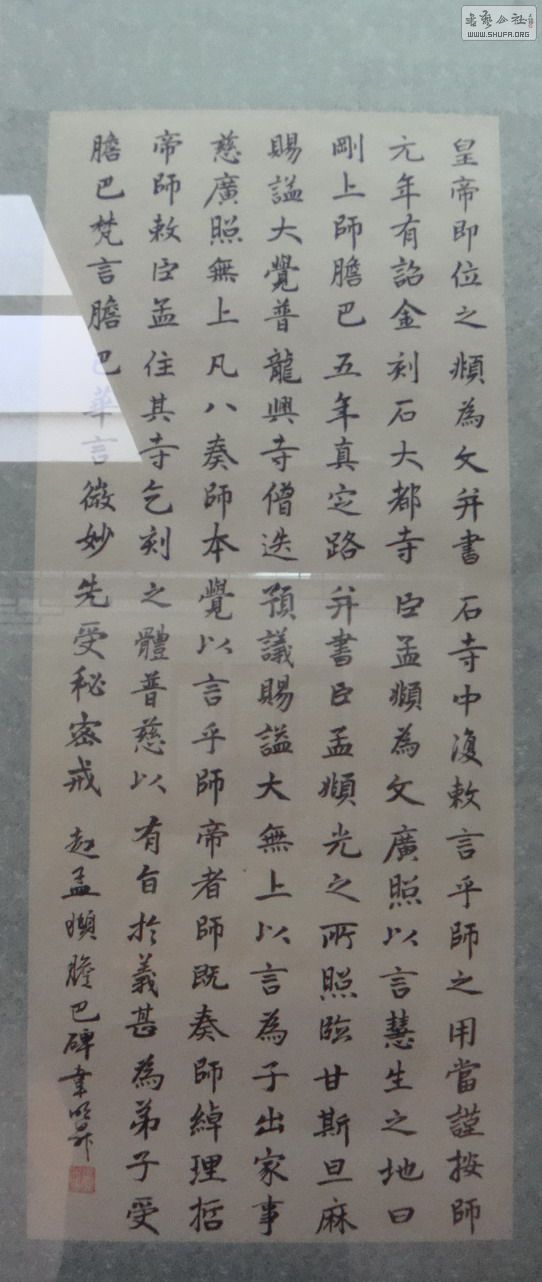 書藝公社
WWW.SHUFA.ORG
皇帝即位之頫為文并書石寺中復敕言乎師之用當謹按師
元年有詔金刻石大都寺臣孟頫為文廣照以言慧生之地曰
剛上師膽巴五年真定路并書臣孟頫光之所照臨甘斯旦麻
賜謚大覺普龍興寺僧迭預議賜謚大無上以言為子出家事
慈廣照無上凡八奏師本覺以言乎師帝者師既奏師綽理哲
帝師敕臣孟住其寺乞刻之體普慈以有旨於義甚為弟子受
膽巴梵言膽巴華言微妙先受秘密戒 趙孟頫膽巴碑韋